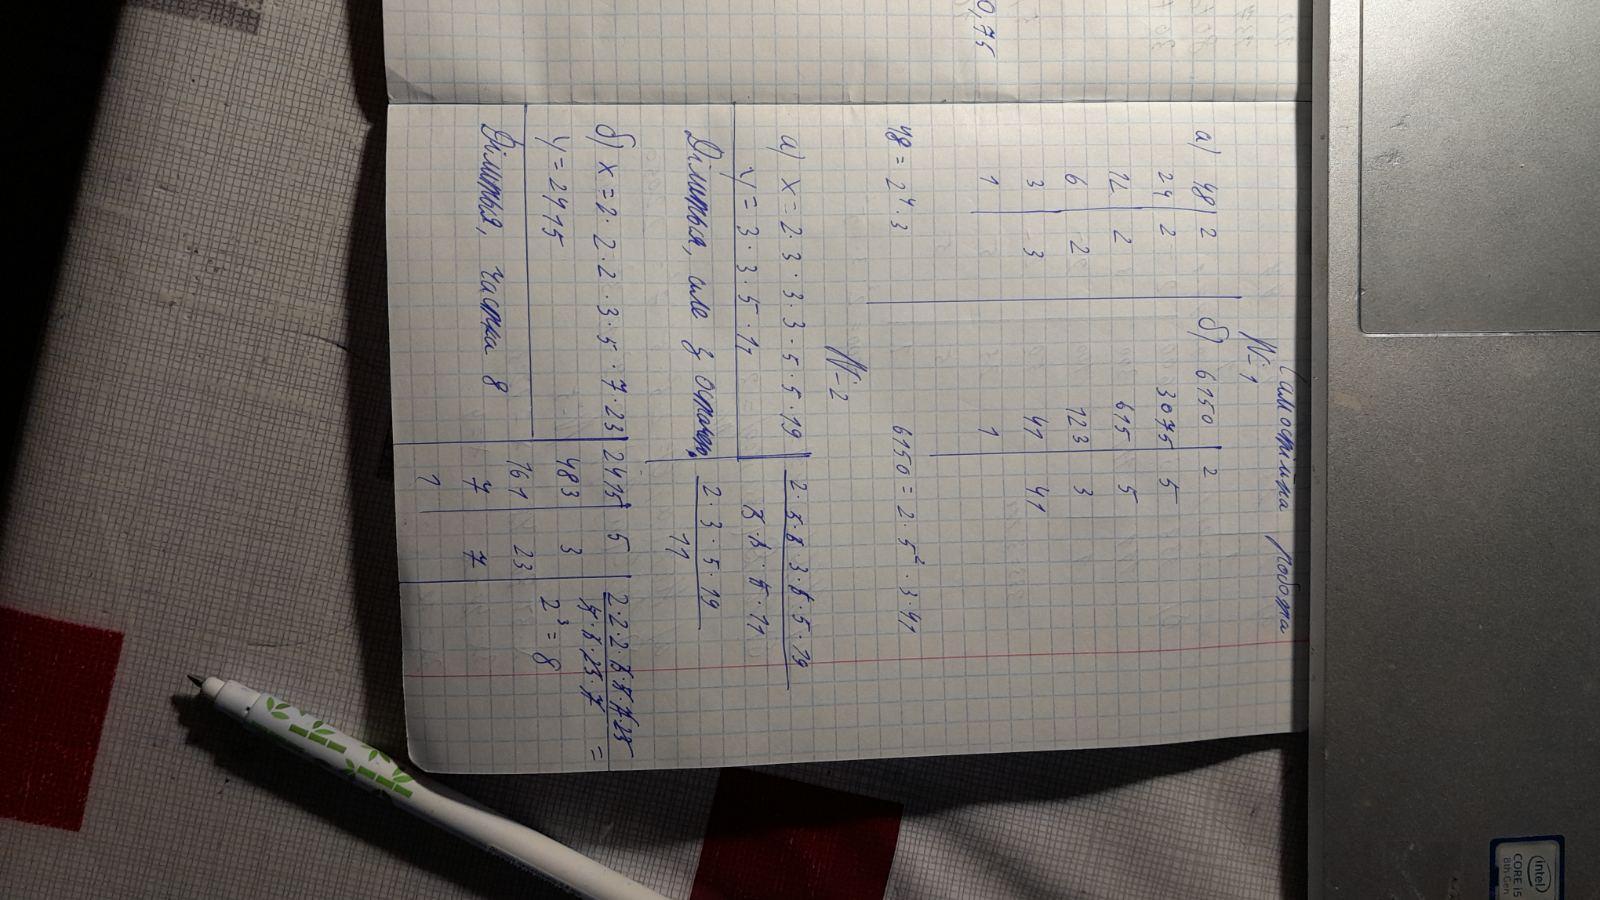 0,75
Самостійна робота
№1
а) 48 | 2
24 | 2
12 | 2
6 | 2
3 | 3
1
48 = 2⁴ · 3
б) 6150 | 2
3075 | 5
615 | 5
123 | 3
41 | 41
1
6150 = 2 · 5² · 3 · 41
№2
а) x = 2 · 3 · 3 · 3 · 5 · 5 · 19
y = 3 · 3 · 5 · 11
2 · 3 · 3 · 3 · 5 · 5 · 19
3 · 3 · 5 · 11
Ділиться, але з остачею.
2 · 3 · 5 · 19
11
б) x = 2 · 2 · 2 · 3 · 5 · 7 · 23
y = 2415
2415 | 5
483 | 3
161 | 23
7 | 7
1
2 · 2 · 2 · 3 · 5 · 7 · 23
5 · 3 · 23 · 7 =
2³ = 8
Ділиться, частка 8
intel
CORE i5
8th Gen